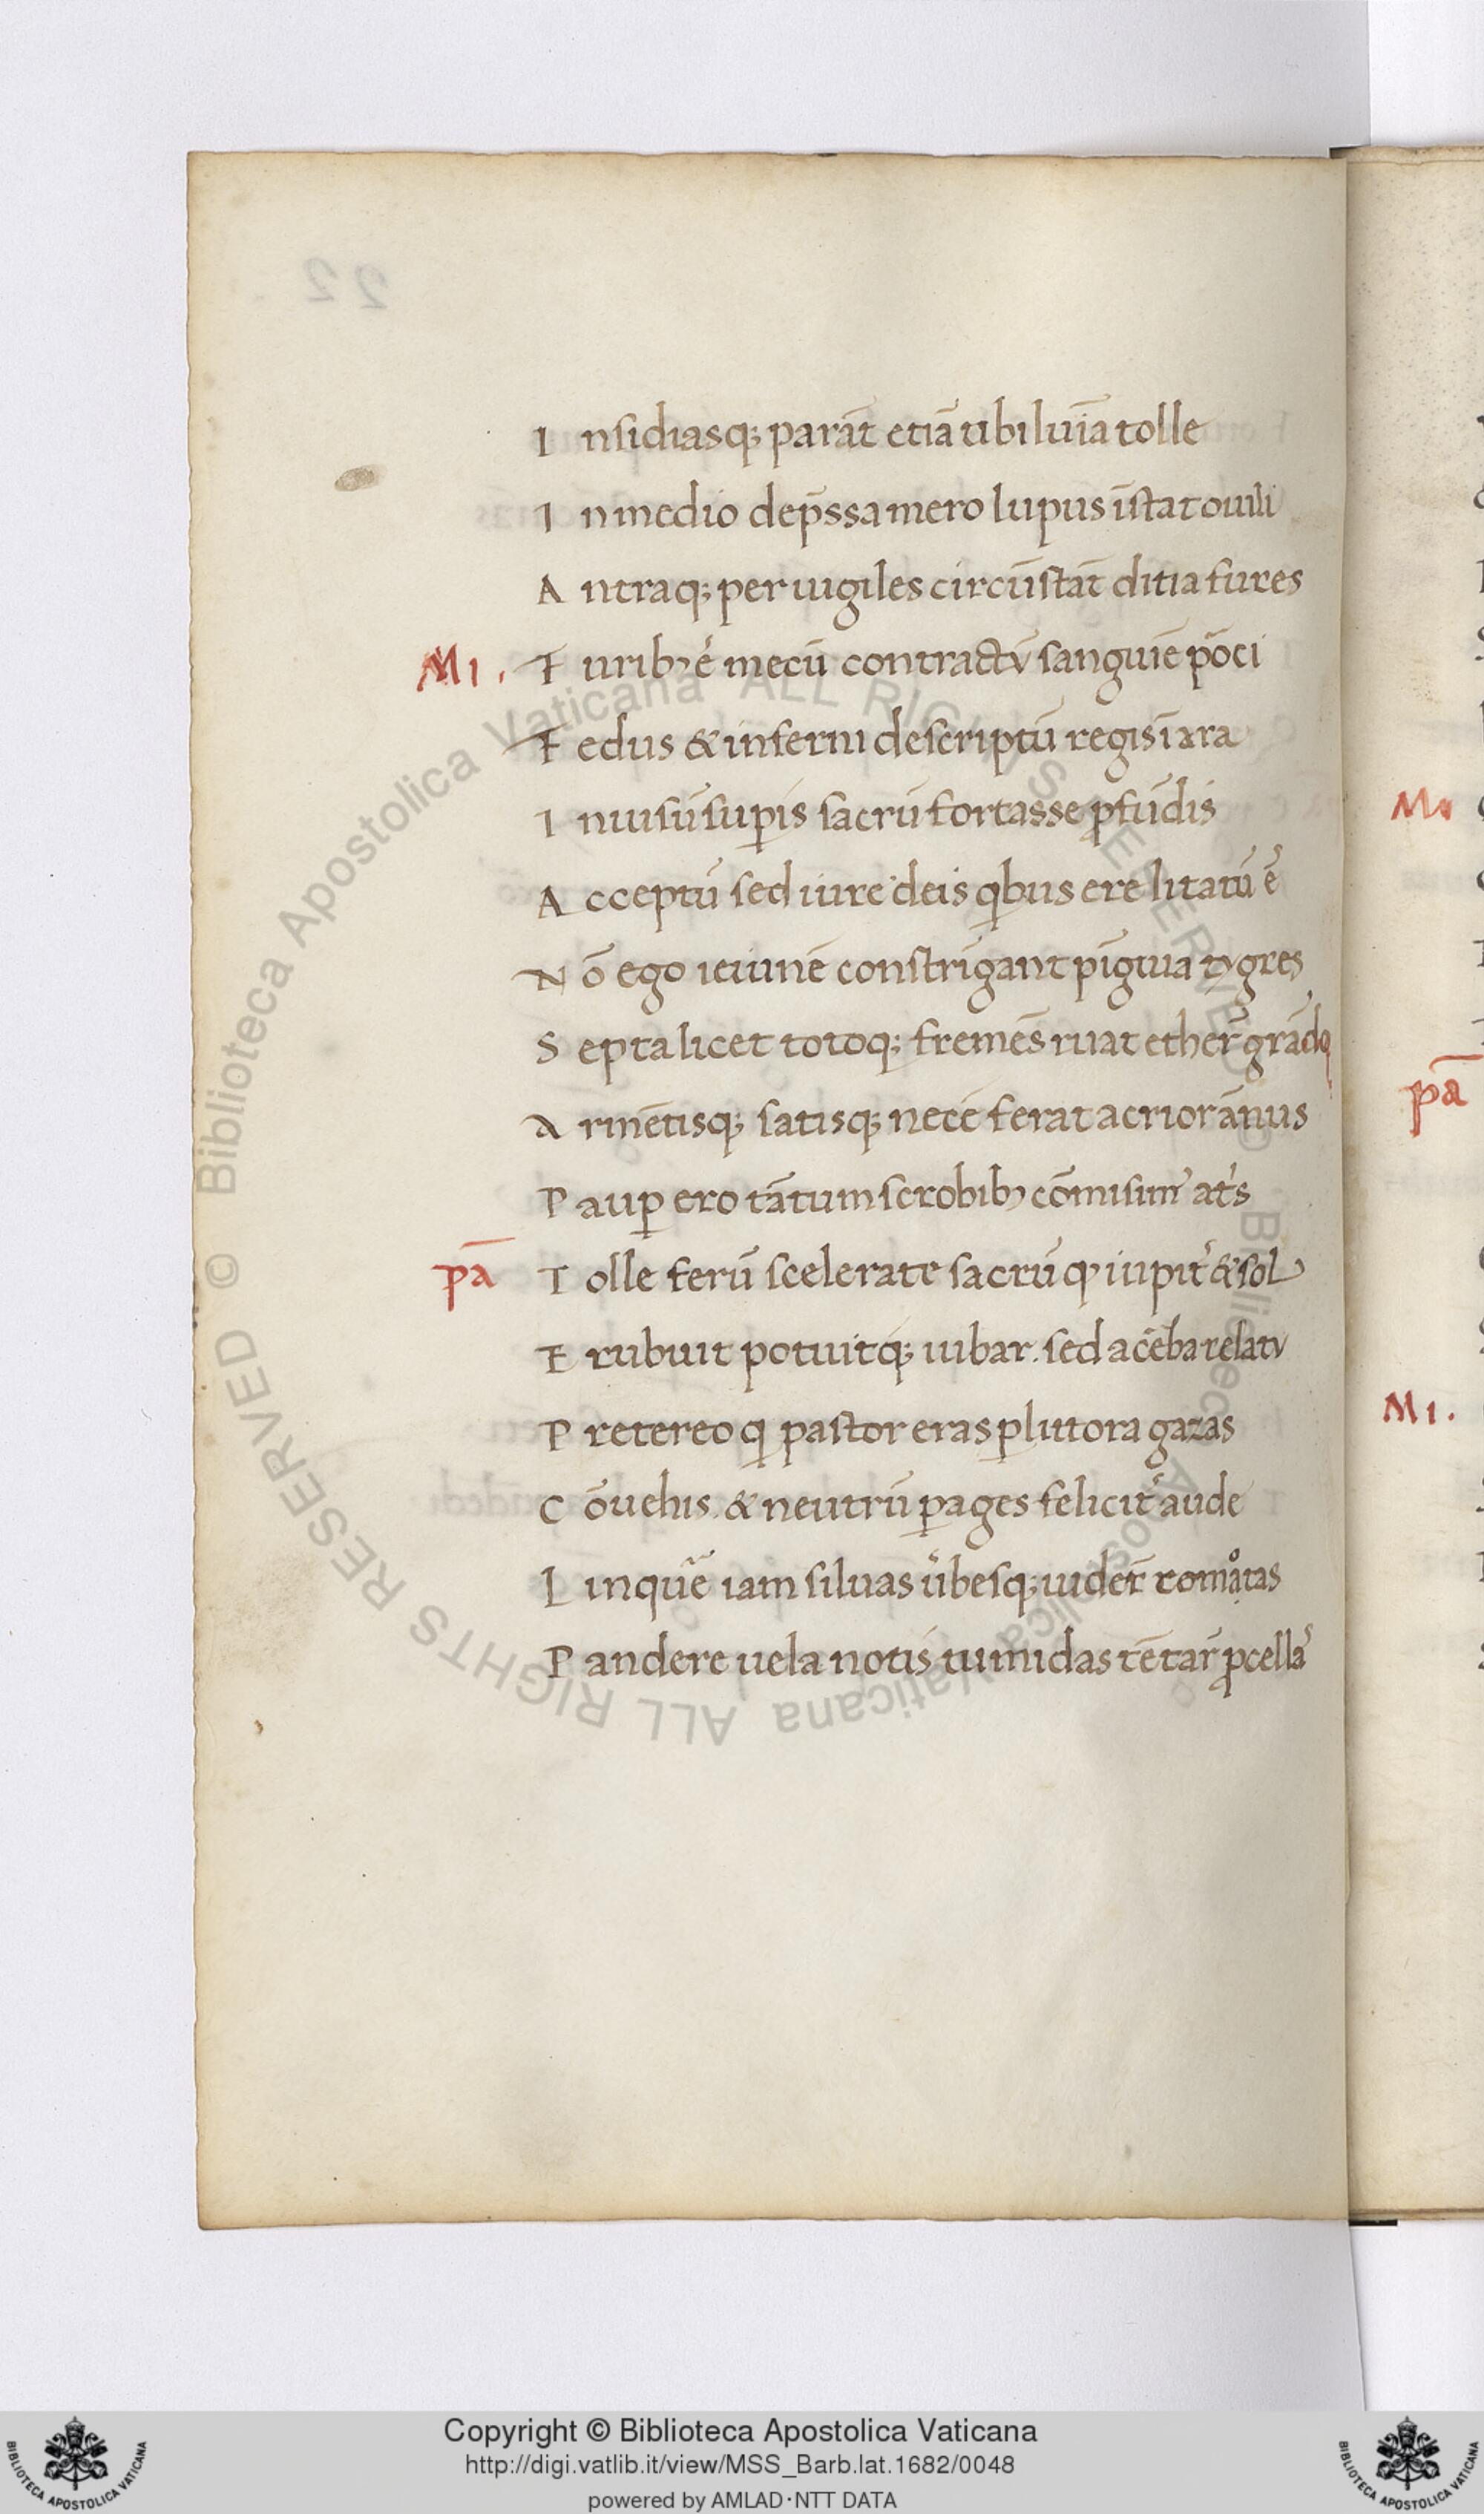 22
I nsidiasq; parāt etiā tibi luīa tolle
I n medio dep̄ssa mero lupus īstat ouili
A ntraq; per uigiles circūstāt ditia fures
M1. F urib; ē mecū contractū sanguīe pōci
F edus & inferni descriptū regis ī ara
I nuisū suꝑis sacrū fortasse ꝓfūdis
A cceptū sed iure deis qbus ere litatū ē
N ō ego ieiunē constrīgant pīgua tygres
S epta licet totoq; fremēs ruat ether̄ grādo
A rmētisq; satisq; necē ferat acrior ānus
P auꝑ ero tātum scrobib; cōmisim' at's
pā T olle ferū scelerate sacrū q iupit' & sol
E rubuit potuitq; iubar. sed acēba relatu
P retereo q pastor eras ꝑ littora gazas
C ōuehis. & neutrū ꝑages felicit' aude
L inquē iam siluas u'besq; uider̄ romotas
P andere uela notis tumidas tētar̄ ꝓcella'
M1
pā
M1.
Copyright © Biblioteca Apostolica Vaticana
http://digi.vatlib.it/view/MSS_Barb.lat.1682/0048
powered by AMLAD·NTT DATA